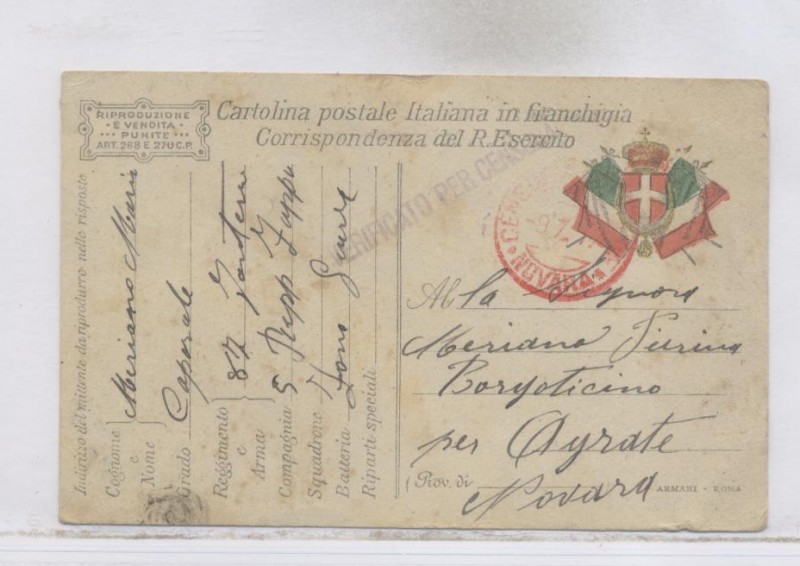 RIPRODUZIONE
E VENDITA
PUNITE
ART. 268 E 270 C.P.
Cartolina postale Italiana in franchigia
Corrispondenza del R. Esercito
VERIFICATO PER CENSURA
NOVARA
Indirizzo del mittente da riprodurre nello risposto
Cognome e Nome Meriano Mario
Grado Caporale
Reggimento e Arma 87 Fanteria
Compagnia 5 Repp Zappa
Squadrone
Batteria Zona Guerra
Riparti speciali
Al la Signora
Meriano Pierina
Borgoticino
per Agrate
(Prov. di Novara
ARMANI - ROMA